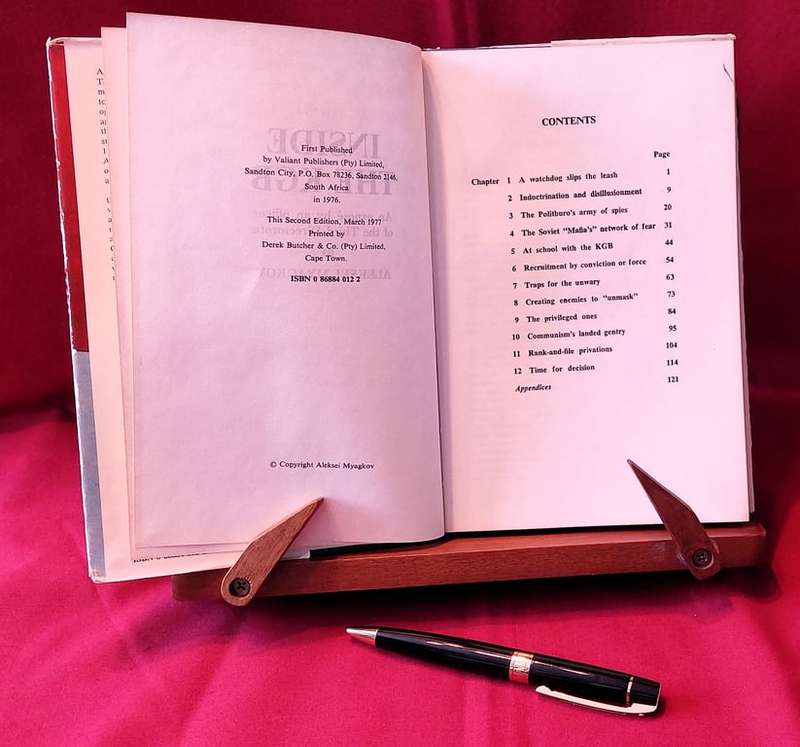 First Published
by Valiant Publishers (Pty) Limited,
Sandton City, P.O. Box 78236, Sandton 2146,
South Africa
in 1976.
This Second Edition, March 1977
Printed by
Derek Butcher & Co. (Pty) Limited,
Cape Town.
ISBN 0 86884 012 2
© Copyright Aleksei Myagkov
CONTENTS
Page
Chapter 1 A watchdog slips the leash 1
2 Indoctrination and disillusionment 9
3 The Politburo's army of spies 20
4 The Soviet "Mafia's" network of fear 31
5 At school with the KGB 44
6 Recruitment by conviction or force 54
7 Traps for the unwary 63
8 Creating enemies to "unmask" 73
9 The privileged ones 84
10 Communism's landed gentry 95
11 Rank-and-file privations 104
12 Time for decision 114
Appendices 121